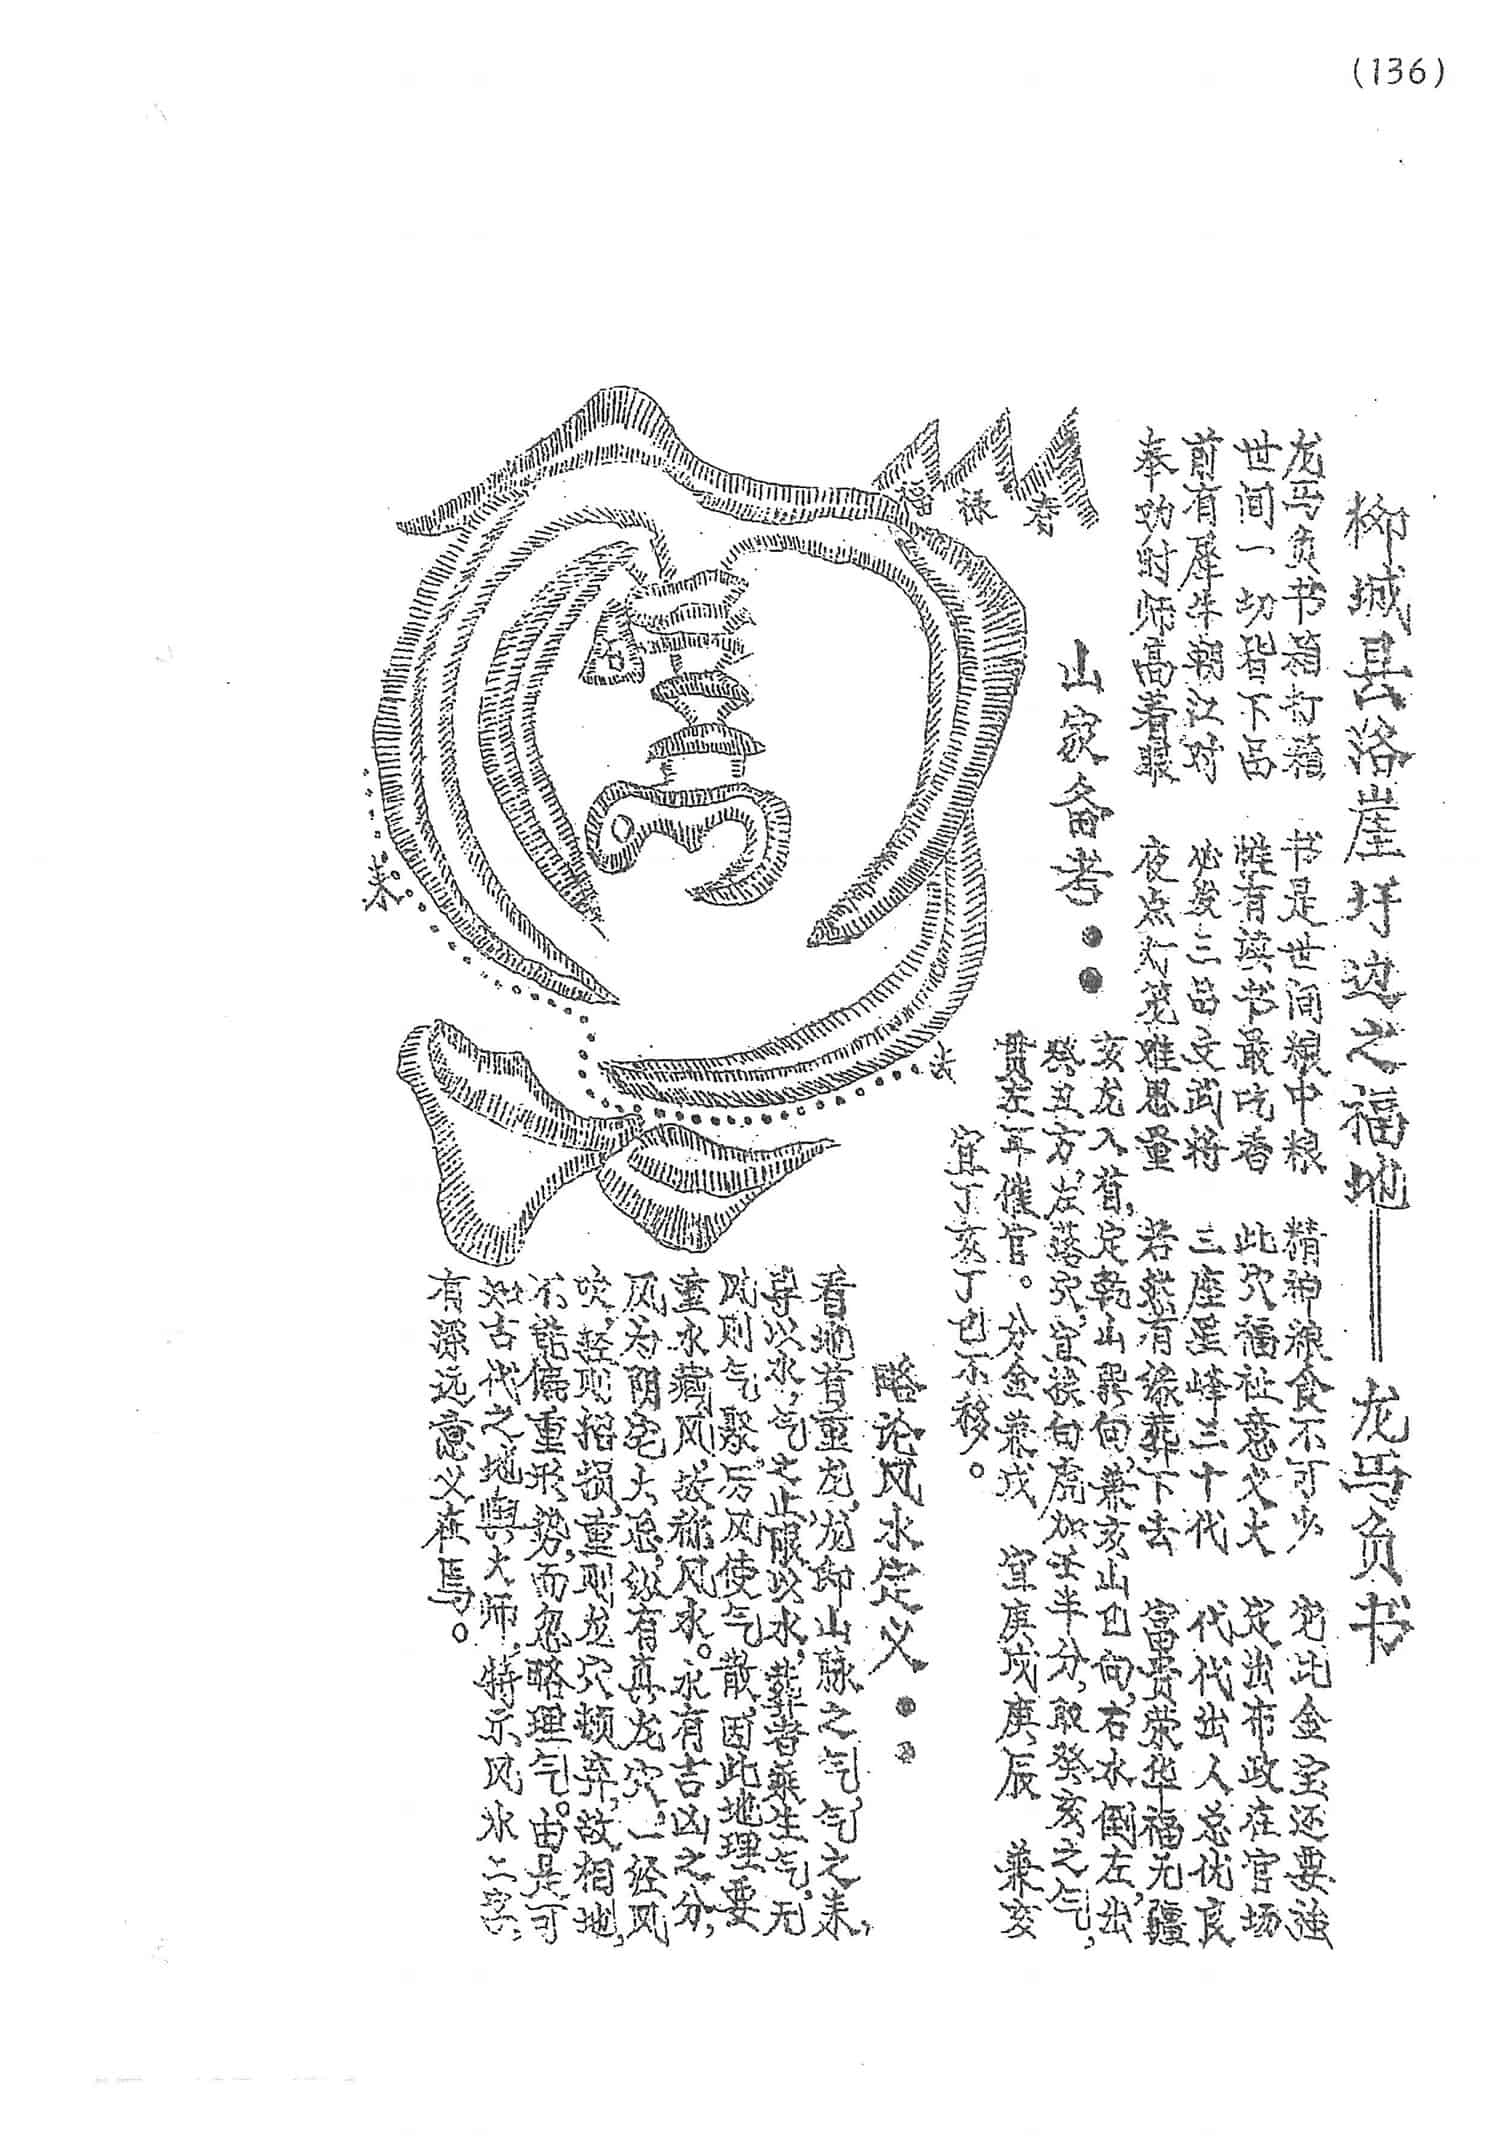 (136)
柳城县洛崖圩边之福地——龙马负书
龙马负书箱打箱 书是世间粮中粮 精神粮食不可少 它比金宝还要强
世间一切皆下品 惟有读书最吃香 此穴福祉意义大 定出布政在官场
前有犀牛朝江对 必发三品文武将 三座星峰三十代 代代出人总优良
奉劝时师高着眼 夜点灯笼难思量 若然有缘葬下去 富贵荣华福无疆
山家备考：
亥龙入首，定乾山巽向，兼亥山巳向，右水倒左，出
癸丑方，左落穴，宜挨白虎加壬半分，取癸亥之气，
贯左耳催官。分金兼戌 宜庚戌庚辰 兼亥
宜丁亥丁巳不移。
略论风水定义：
看地首重龙，龙即山脉之气，气之来，
导以水，气之止，限以水，葬者乘生气，无
风则气聚，历风使气散，因此地理要
重水藏风，故称风水。水有吉凶之分，
风为阴宅大忌，纵有真龙穴，一经风
吹，轻则招损，重则龙穴顿弃，故相地，
不能偏重形势，而忽略理气。由是可
知古代之地舆大师，特示风水二字，
有深远意义在焉。
福
禄
寿
书
来
去